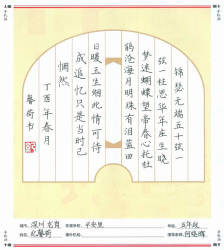 锦瑟无端五十弦一
弦一柱思华年庄生晓
梦迷蝴蝶望帝春心托杜
鹃沧海月明珠有泪蓝田
日暖玉生烟此情可待
成追忆只是当时已
惘然
丁酉年春月
馨荷书
深圳 龙岗 平安里 五年级